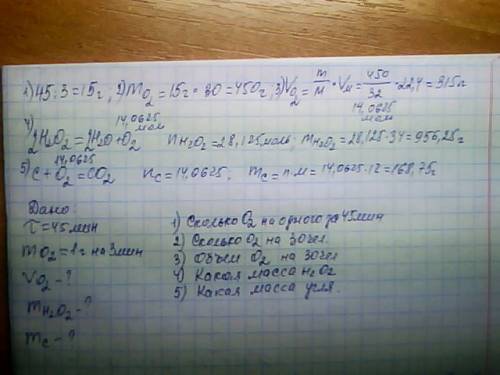 1) 45:3=15г, 2) mO2=15г·30=450г, 3) VO2=m/M·Vм=450/32·22,4=315л
14,0625 моль
4) 14,0625 моль
2H2O2=2H2O+O2 nH2O2=28,125моль, mH2O2=28,125·34=956,25г
14,0625
5) C+O2=CO2 nC=14,0625; mC=n·M=14,0625·12=168,75г
Дано:
τ=45мин
mO2=1г на 3мин
VO2-?
mH2O2-?
mC-?
1) Сколько O2 на одного за 45мин
2) Сколько O2 на 30чел.
3) Объем O2 на 30чел
4) Какая масса H2O2
5) Какая масса угля.